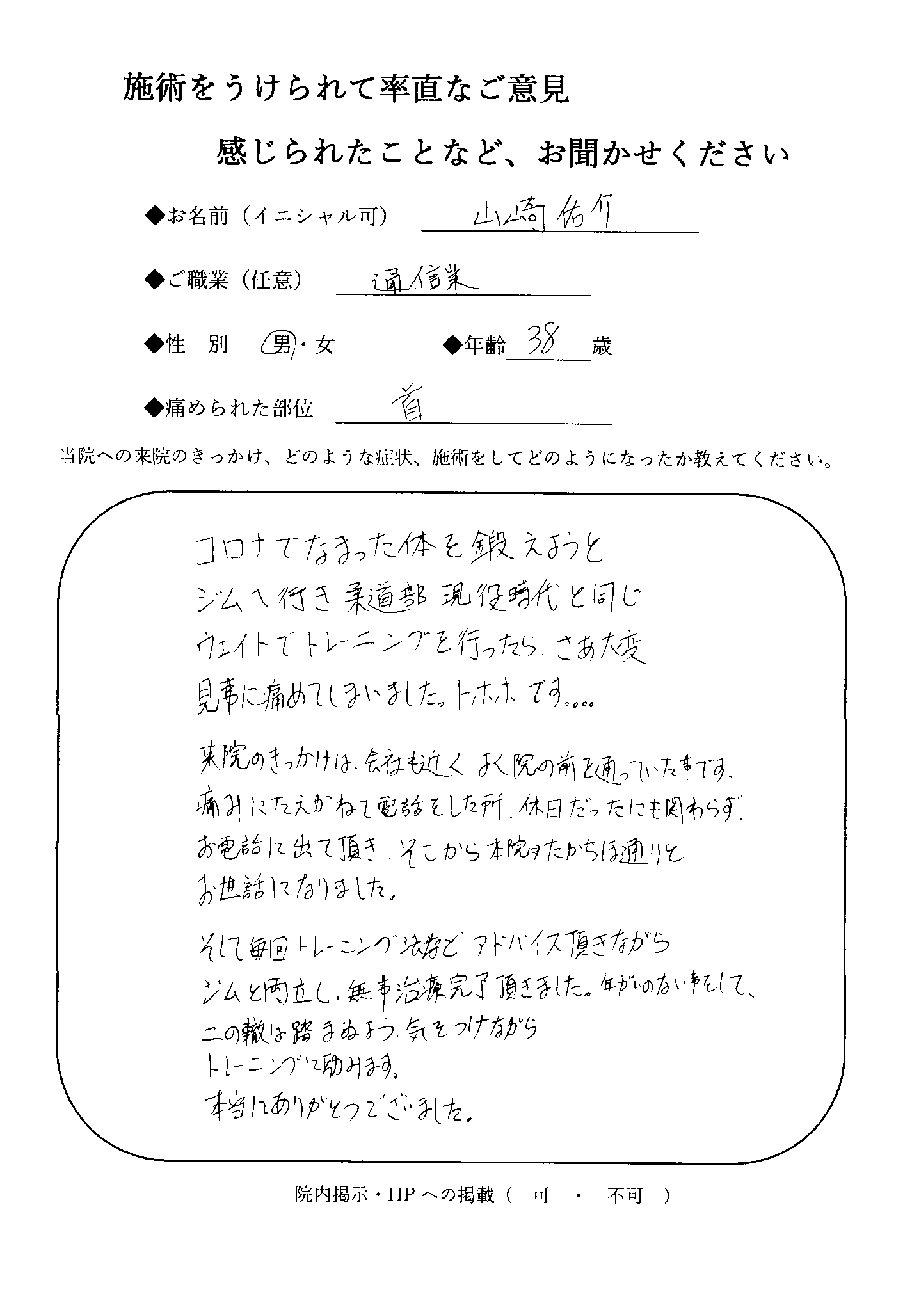 施術をうけられて率直なご意見
感じられたことなど、お聞かせください
◆お名前（イニシャル可） 山崎佑介
◆ご職業（任意） 通信業
◆性 別 男・女 ◆年齢 38 歳
◆痛められた部位 首
当院への来院のきっかけ、どのような症状、施術をしてどのようになったか教えてください。
コロナでなまった体を鍛えようと
ジムへ行き柔道部現役時代と同じ
ウェイトでトレーニングを行ったら、さあ大変
見事に痛めてしまいました。トホホです。...
来院のきっかけは、会社も近くよく院の前を通っていた事です、
痛みにたえかねて電話をした所、休日だったにも関わらず、
お電話に出て頂き、そこから本院
お世話になりました。
そして毎回トレーニング法など アドバイス頂きながら
ジムと両立し、無事治療完了頂きました。年がいのない事をして、
二の轍は踏まぬよう、気をつけながら
トレーニングに励みます。
本当にありがとうございました。
院内掲示・HPへの掲載（ 可 ・ 不可 ）